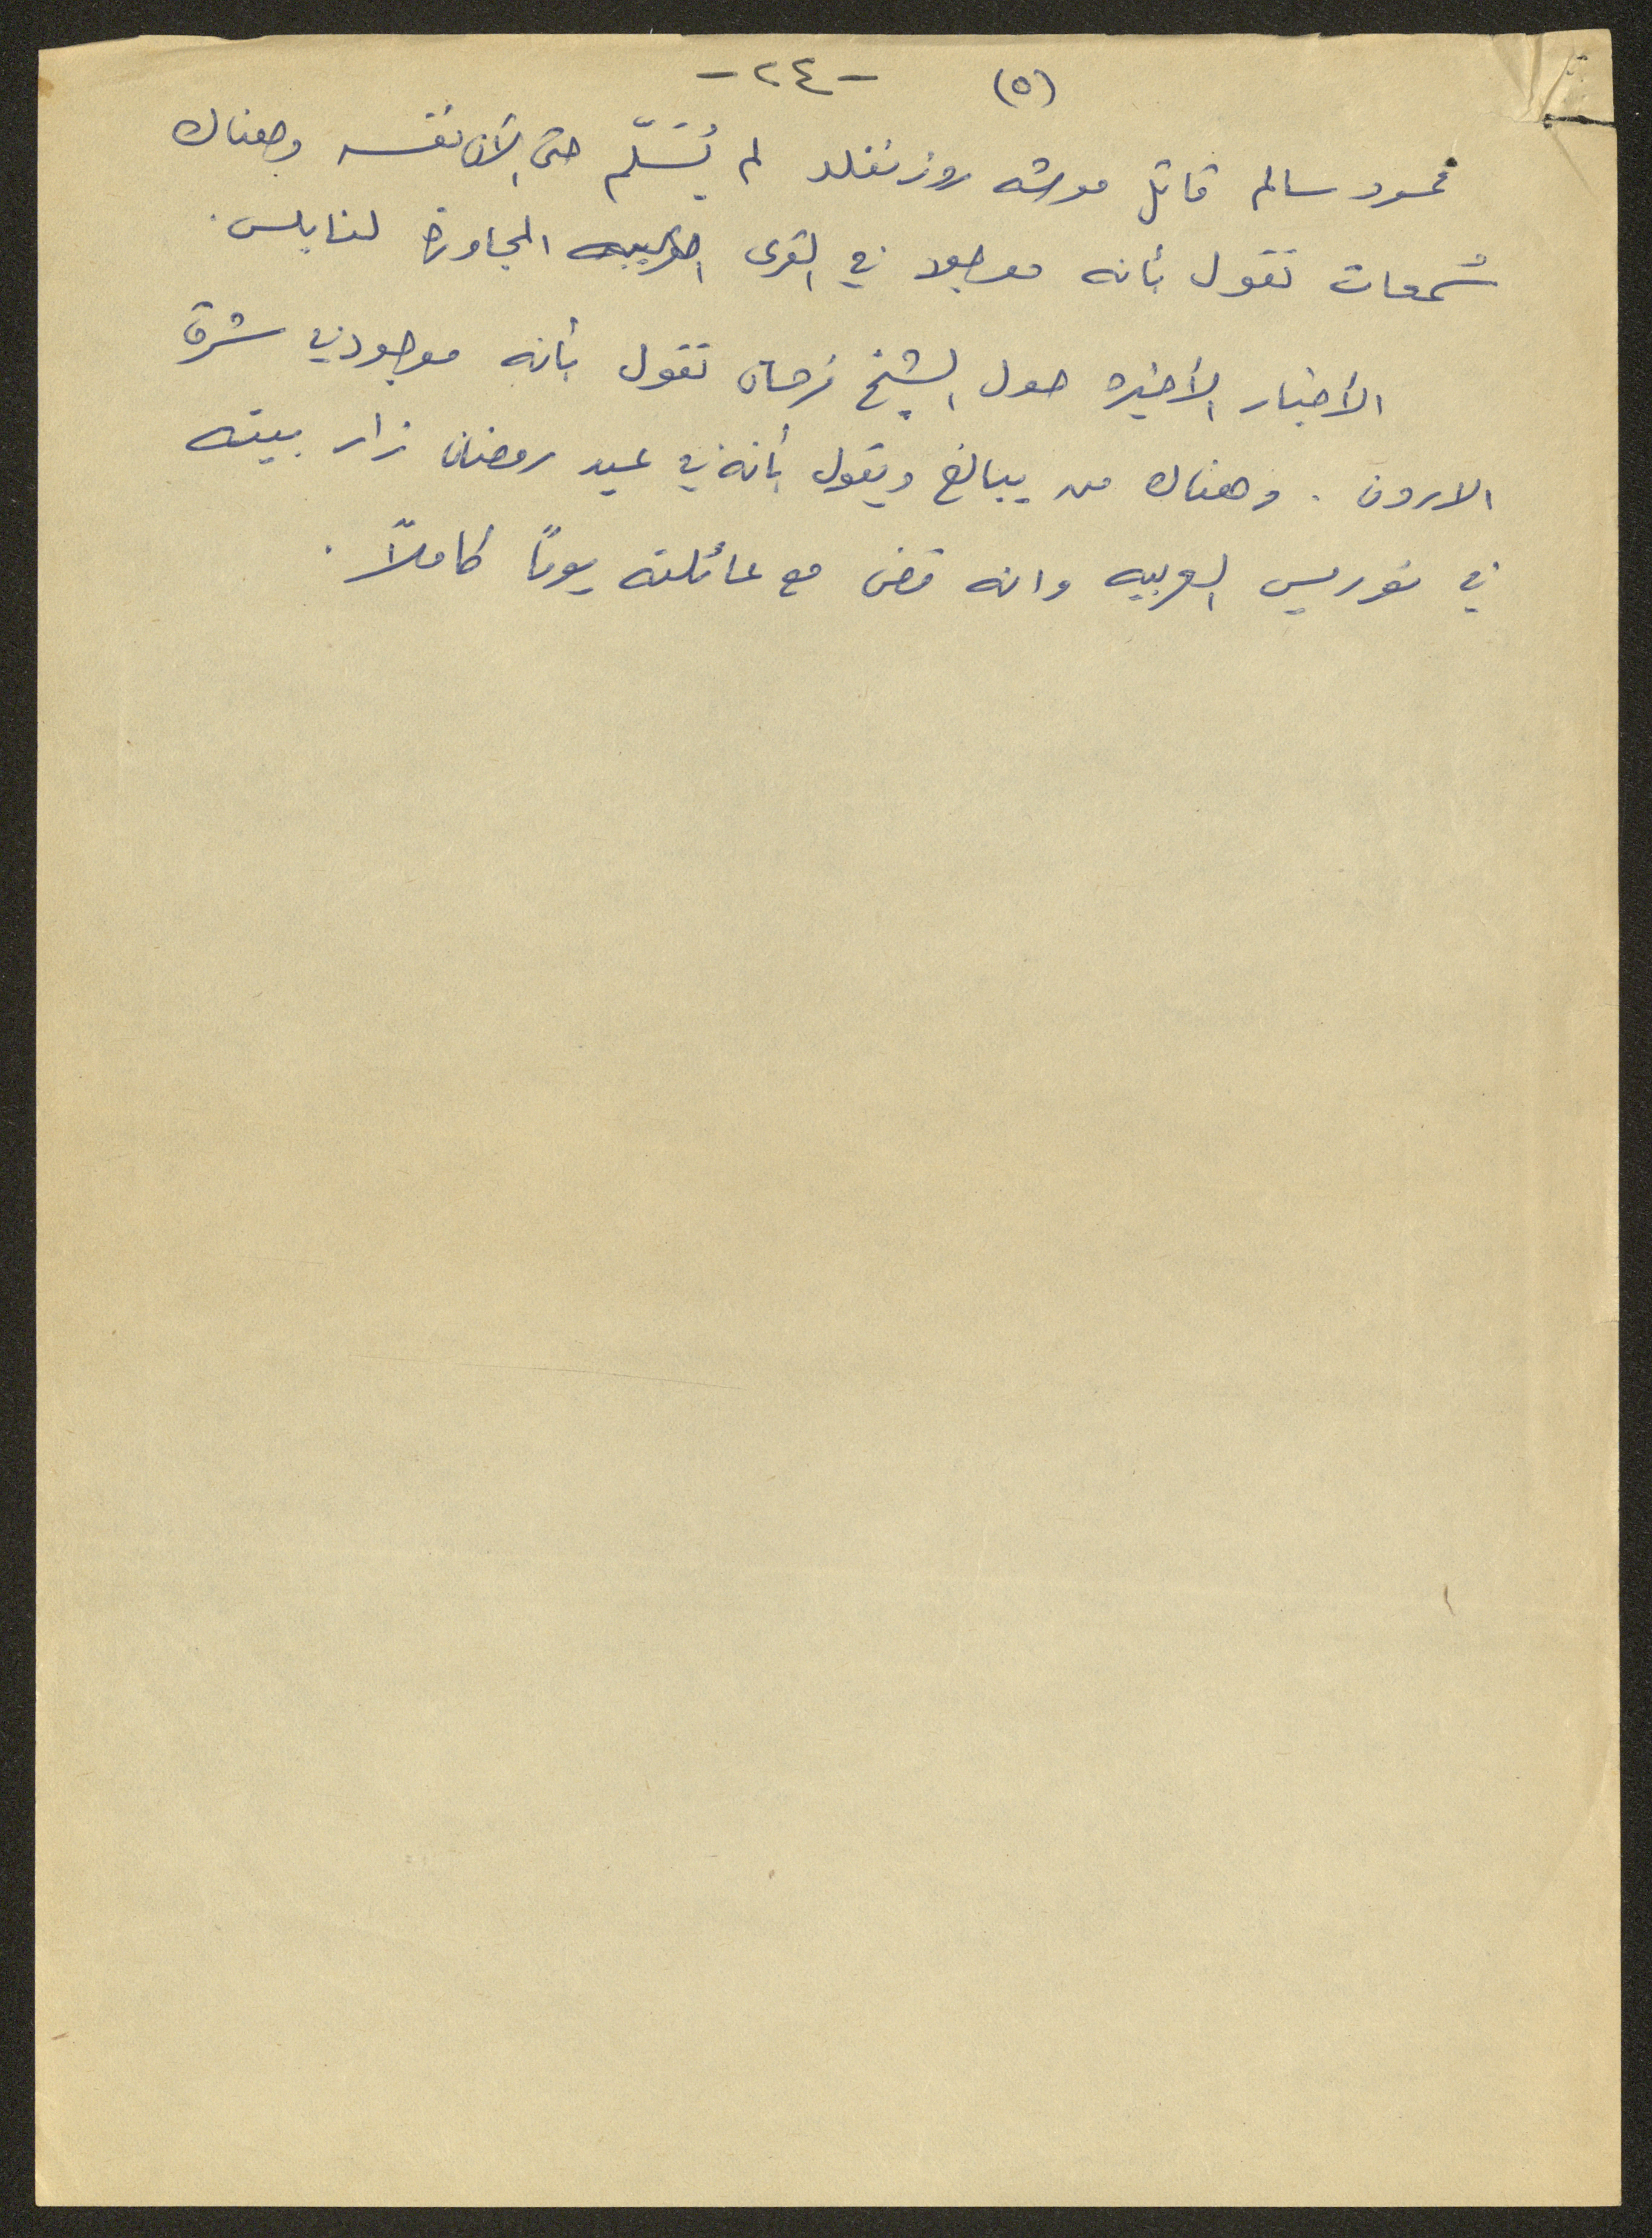 -٢٤- (٥)
محمود سالم قاتل موشه روزنفلد لم يُسَلّم حتى الآن نفسه وهناك
شمعات تقول بأنه موجود في القرى المجاورة لنابلس.
الأخبار الأخيره حول الشيخ فرحان تقول بأنه موجود في شرق
الاردن. وهناك من يبالغ ويقول بأنه في عيد رمضان زار بيته
في نوريس العربيه وانه قضى مع عائلته يومًا كاملاً.